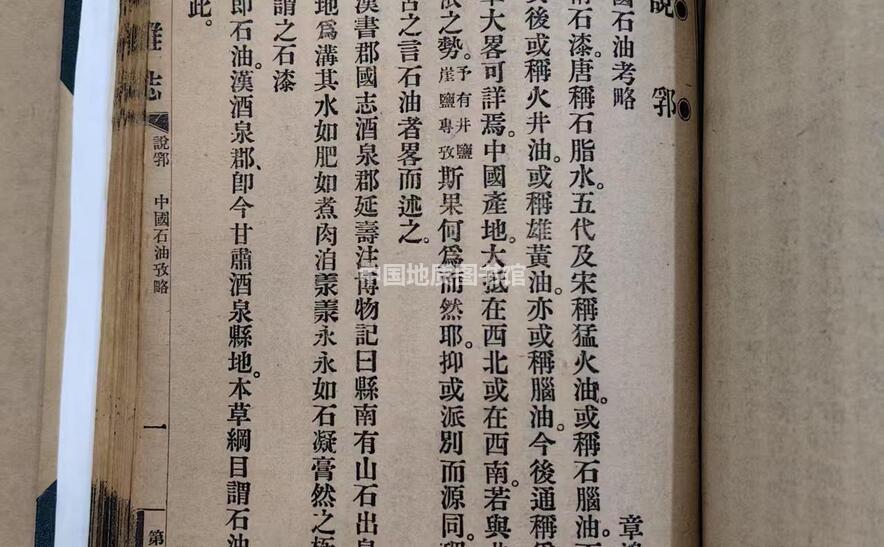 說郛
國石油考略
章
石漆。唐稱石脂水。五代及宋稱猛火油。或稱石腦油。
後或稱火井油。或稱雄黃油。亦或稱腦油。今後通稱
大畧可詳焉。中國產地。大抵在西北或在西南。若與
之勢。予有井鹽崖鹽專攷斯果何爲而然耶。抑或派別而源同。
之言石油者畧而述之。
漢書郡國志酒泉郡延壽注博物記曰縣南有山石出泉
地爲溝其水如肥如煮肉洎羕羕永永如石凝膏然之極
謂之石漆
即石油。漢酒泉郡、卽今甘肅酒泉縣地。本草綱目謂石油
此。
雜志
說郛 中國石油攷略
一
第
中国地质图书馆